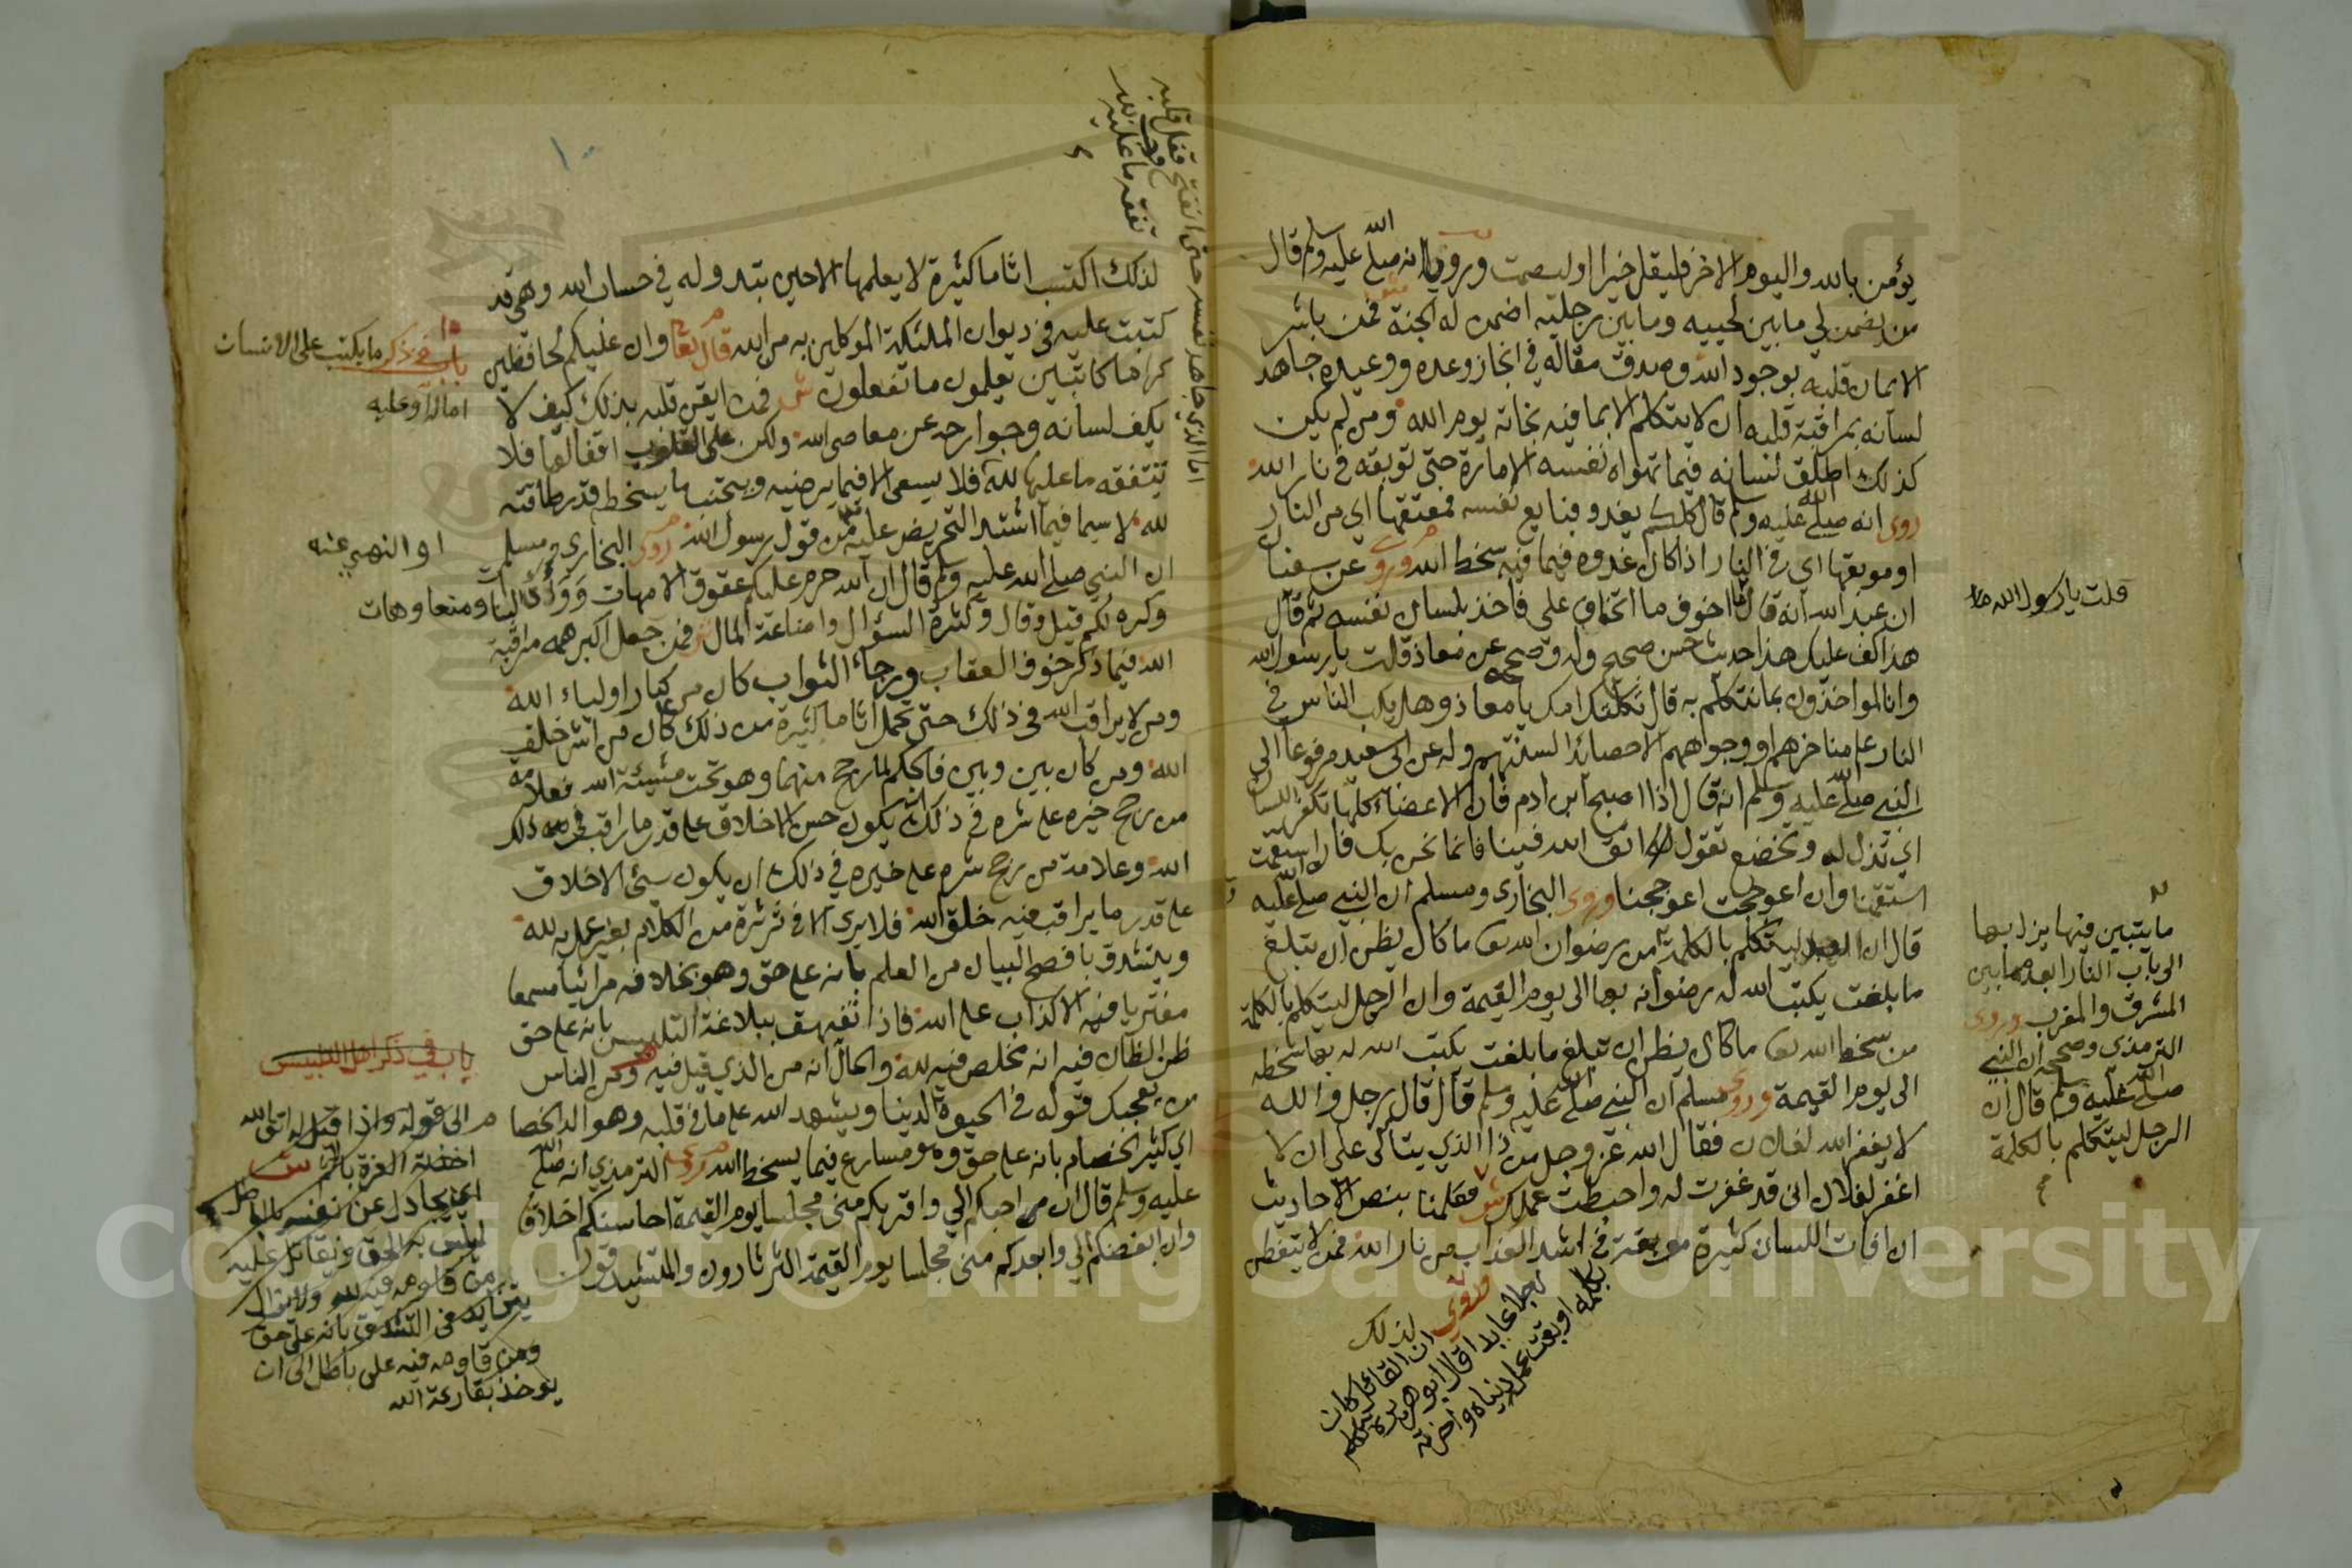 يؤمن بالله واليوم الاخر فليقل خيرا او ليصمت وروي انه صلى الله عليه وسلم قال
من يضمن لي ما بين لحييه وما بين رجليه اضمن له الجنة فمن باشر
الايمان قلبه بوجود الله وصدق مقاله في انجاز وعده ووعيده جاهد
لسانه بمراقبة قلبه ان لا يتكلم الا بما فيه نجاته يوم الله ومن لم يكن
كذلك اطلق لسانه فيما تهواه نفسه الامارة حتى توبقه في نار الله
روى انه صلى الله عليه وسلم قال كلكم يغدو فبايع نفسه فمعتقها اي من النار
او موبقها اي في النار اذا كان غدوه فيما فيه سخط الله وروي عن سفيان
ابن عبد الله انه قال ما اخوف ما تخاف علي فاخذ بلسان نفسه ثم قال
قلت يا رسول الله ما
هذا كف عليك هذا حديث حسن صحيح وله وصححه عن معاذ قلت يا رسول الله
وانا لمواخذون بما نتكلم به قال ثكلتك امك يا معاذ وهل يكب الناس في
النار على مناخرهم او وجوههم الا حصائد السنتهم وله عن ابي سعيد مرفوعا الى
النبي صلى الله عليه وسلم انه قال اذا اصبح ابن ادم فان الاعضاء كلها تكفر اللسان
اي تذل له وتخضع تقول اتق الله فينا فانما نحن بك فان استقمت
استقمنا وان اعوججت اعوججنا وروى البخاري ومسلم ان النبي صلى الله عليه
قال ان العبد ليتكلم بالكلمة من رضوان الله ما كان يظن ان تبلغ
ما بلغت يكتب الله له رضوانه بها الى يوم القيمة وان الرجل ليتكلم بالكلمة
من سخط الله ما كان يظن ان تبلغ ما بلغت يكتب الله له بها سخطه
الى يوم القيمة وروى مسلم ان النبي صلى الله عليه وسلم قال قال رجل والله
لا يغفر الله لفلان فقال الله عز وجل من ذا الذي يتألى علي ان لا
اغفر لفلان اني قد غفرت له واحبطت عملك فعلمنا بنص الاحاديث
ان افات اللسان كثيرة موبقة في اشد العذاب من نار الله فمن لا يتفطن
لذلك
وروي ان القائل كان
رجلا عابدا قال ابو هريرة تكلم
بكلمة اوبقت عمل دنياه واخرته
ما يتبين فيها يزل بها
الى باب النار ابعد مما بين
المشرق والمغرب وروى
الترمذي وصححه ان النبي
صلى الله عليه وسلم قال ان
الرجل ليتكلم بالكلمة
اما الذي جاهد نفسه حتى انفتح قفل قلبه
تفقه ما عليه لله
لذلك اكتسب اثاما كثيرة لا يعلمها الا حين تبتدو له في حساب الله وهي قد
كتبت عليه في ديوان الملئكة الموكلين به من الله قال تعالى وان عليكم لحافظين
باب في ذكر ما يكتب على الانسان
اما له او عليه
كراما كاتبين يعلمون ما تفعلون فمن ايقن قلبه بذلك كيف لا
يكف لسانه وجوارحه عن معاصي الله ولكن على القلوب اقفالها فلا
تتفقه ما عليها لله فلا يسعى الا فيما يرضيه ويجتنب ما يسخط قدر طاقته
لله لا سيما فيما اشتد التحريض عليه من قول رسول الله روى البخاري ومسلم
او النهي عنه
ان النبي صلى الله عليه وسلم قال ان الله حرم عليكم عقوق الامهات ووأد البنات ومنعا وهات
وكره لكم قيل وقال وكثرة السؤال واضاعة المال فمن جعل اكبر همه مراقبة
الله فيما ذكر خوف العقاب ورجاء الثواب كان من كبار اولياء الله
ومن لا يراقب الله في ذلك حتى تحمل اثاما كثيرة من ذلك كان من اشر خلق
الله ومن كان بين وبين فالحكم لما رجح منهما وهو تحت مشيئة الله فعلامة
من رجح خيره على شره في ذلك ان يكون حسن الاخلاق على قدر ما راقب في ذلك
الله وعلامة من رجح شره على خيره في ذلك ان يكون سيئ الاخلاق
على قدر ما يراقب فيه خلق الله فلا يرى الا في ثرثرة من الكلام بغير عمل به لله
ويتشدق بافصح البيان من العلم بانه على حق وهو بخلافه مرائيا مسمعا
مفتريا فيه الاكذاب على الله فاذا تفيهق ببلاغة التلبيس بانه على حق
باب في ذكر اهل التلبيس
ظن الظان فيه انه مخلص فيه لله والحال انه من الذي قيل فيه ومن الناس
من يعجبك قوله في الحيوة الدنيا ويشهد الله على ما في قلبه وهو الد الخصام
اي كثير الخصام بانه على حق وهو مسارع فيما يسخط الله وروى الترمذي انه صلى الله
عليه وسلم قال ان من احبكم الي واقربكم مني مجلسا يوم القيمة احاسنكم اخلاقا
وان ابغضكم الي وابعدكم مني مجلسا يوم القيمة الثرثارون والمتشيدقون
الى قوله واذا قيل له اتق الله
اخذته العزة بالاثم
اي يجادل عن نفسه بالباطل
ليلبس به الحق ويقاتل عليه
من قاومه فيه لله ولا يزال
يتزايد في التشدق بانه على حق
ومن قاومه فيه على باطل الى ان
يوخذ بقارعة الله
Copyright © King Saud University